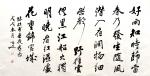 好雨知時節當
春乃發生随風
潛入夜潤物細
無聲野徑雲
俱黑江船火獨
明曉看紅濕處
花重錦官城